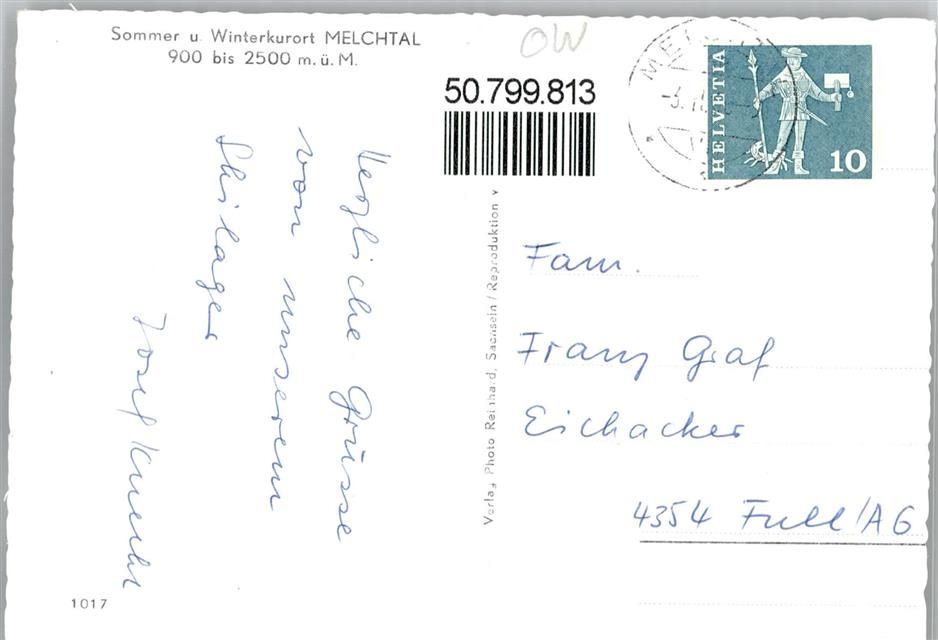 Sommer u. Winterkurort MELCHTAL
900 bis 2500 m. ü. M.
OW
50.799.813
HELVETIA
10
Herzliche Grüsse
von unserem
Skilager
Josef Knecht
Verlag Photo Reinhard, Sachseln / Reproduktion v
Fam.
Franz Graf
Eichacker
4354 Full/AG
1017